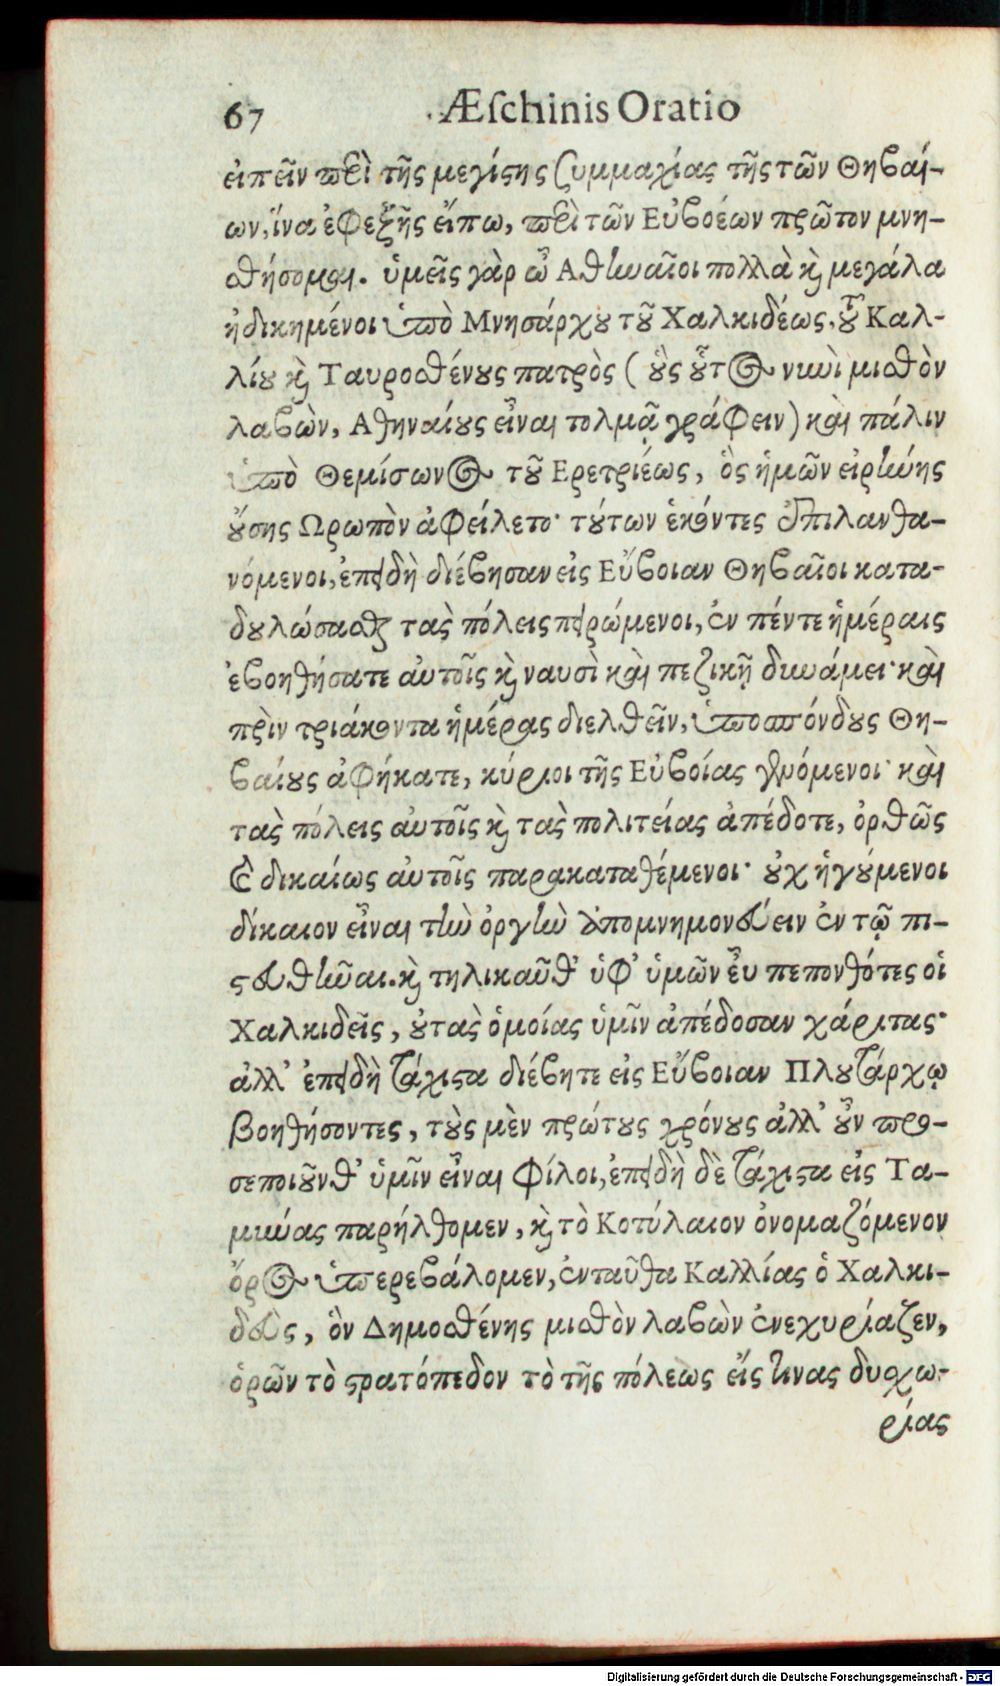 67 Æſchinis Oratio
εἰπεῖν περὶ τῆς μεγίϛης συμμαχίας τῆς τῶν Θηβαί-
ων, ἵνα ἐφεξῆς εἴπω, περὶ τῶν Εὐβοέων πρῶτον μνη-
σθήσομαι. ὑμεῖς γὰρ ὦ Αθηναῖοι πολλὰ καὶ μεγάλα
ἠδικημένοι ὑπὸ Μνησάρχου τοῦ Χαλκιδέως, τοῦ Καλ-
λίου καὶ Ταυροσθένους πατρὸς (οὓς οὗτος νυνὶ μισθὸν
λαβὼν, Αθηναίους εἶναι τολμᾷ γράφειν) καὶ πάλιν
ὑπὸ Θεμίσωνος τοῦ Ερετριέως, ὃς ἡμῶν εἰρήνης
οὔσης Ωρωπὸν ἀφείλετο· τούτων ἑκόντες ἐπιλανθα-
νόμενοι, ἐπειδὴ διέβησαν εἰς Εὔβοιαν Θηβαῖοι κατα-
δουλώσασθαι τὰς πόλεις πειρώμενοι, ἐν πέντε ἡμέραις
ἐβοηθήσατε αὐτοῖς καὶ ναυσὶ καὶ πεζικῇ δυνάμει· καὶ
πρὶν τριάκοντα ἡμέρας διελθεῖν, ὑποσπόνδους Θη-
βαίους ἀφήκατε, κύριοι τῆς Εὐβοίας γενόμενοι· καὶ
τὰς πόλεις αὐτοῖς καὶ τὰς πολιτείας ἀπέδοτε, ὀρθῶς
καὶ δικαίως αὐτοῖς παρακαταθέμενοι· οὐχ ἡγούμενοι
δίκαιον εἶναι τὴν ὀργὴν ἀπομνημονεύειν ἐν τῷ πι-
ϛευθῆναι. καὶ τηλικαῦθ’ ὑφ’ ὑμῶν εὖ πεπονθότες οἱ
Χαλκιδεῖς, οὐ τὰς ὁμοίας ὑμῖν ἀπέδοσαν χάριτας·
ἀλλ’ ἐπειδὴ τάχιϛα διέβητε εἰς Εὔβοιαν Πλουτάρχῳ
βοηθήσοντες, τοὺς μὲν πρώτους χρόνους ἀλλ’ οὖν προ-
σεποιοῦνθ’ ὑμῖν εἶναι φίλοι, ἐπειδὴ δὲ τάχιϛα εἰς Τα-
μύνας παρήλθομεν, καὶ τὸ Κοτύλαιον ὀνομαζόμενον
ὄρος ὑπερεβάλομεν, ἐνταῦθα Καλλίας ὁ Χαλκι-
δεὺς, ὃν Δημοσθένης μισθὸν λαβὼν ἐνεχυρίαζεν,
ὁρῶν τὸ ϛρατόπεδον τὸ τῆς πόλεως εἴς τινας δυσχω-
ρίας
Digitalisierung gefördert durch die Deutsche Forschungsgemeinschaft - DFG